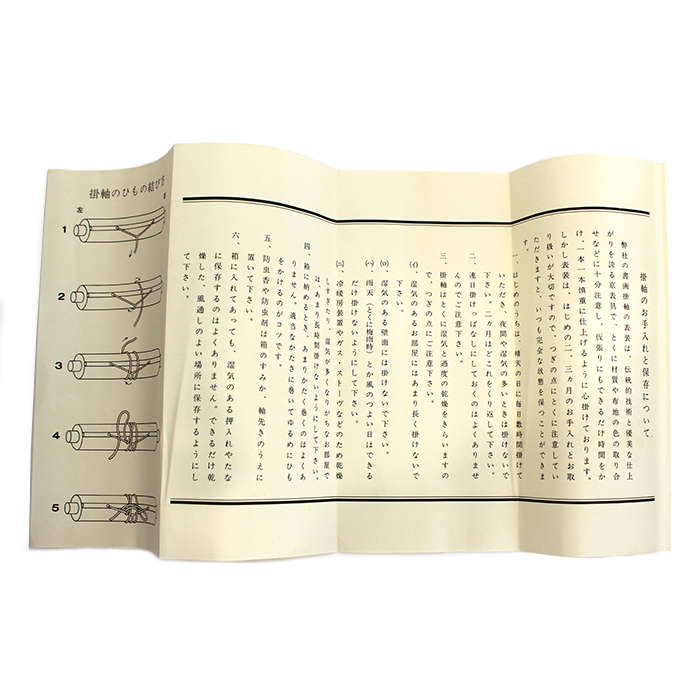 掛軸のお手入れと保存について
弊社の書画掛軸の表装は、伝統的技術と優美な仕上
がりを誇る京表具で、とくに材質や布地の色の取り合
せなどに十分注意し、仮張りにもできるだけ時間をか
け、一本一本慎重に仕上げるように心掛けております。
しかし表装は、はじめの二、三ヵ月のお手入れとお取
り扱いが大切ですので、つぎの点にとくに注意してい
ただきますと、いつも完全な状態を保つことができま
す。
一、はじめのうちは、晴天の日に毎日数時間掛けて
いただき、夜間や湿気の多いときは掛けないで
下さい。二ヵ月ほどこれをくり返して下さい。
二、連日掛けっぱなしにしておくのはよくありませ
んのでご注意下さい。
三、掛軸はとくに湿気と過度の乾燥をきらいますの
で、つぎの点にご注意下さい。
(イ)、湿気のあるお部屋にはあまり長く掛けないで
下さい。
(ロ)、湿気のある壁面には掛けないで下さい。
(ハ)、雨天(とくに梅雨時)とか風のつよい日はできる
だけ掛けないようにして下さい。
(ニ)、冷暖房装置やガス・ストーヴなどのため乾燥
しすぎたり、湿気が多くなりがちなお部屋で
は、あまり長時間掛けないようにして下さい。
四、箱に納めるとき、あまりかたく巻くのはよくあ
りません。適当なかたさに巻いてゆるめにひも
をかけるのがコツです。
五、防虫香や防虫剤は箱のすみか、軸先きのうえに
置いて下さい。
六、箱に入れてあっても、湿気のある押入れやたな
に保存するのはよくありません。できるだけ乾
燥した、風通しのよい場所に保存するようにし
て下さい。
掛軸のひもの結び方
左
1
2
3
4
5